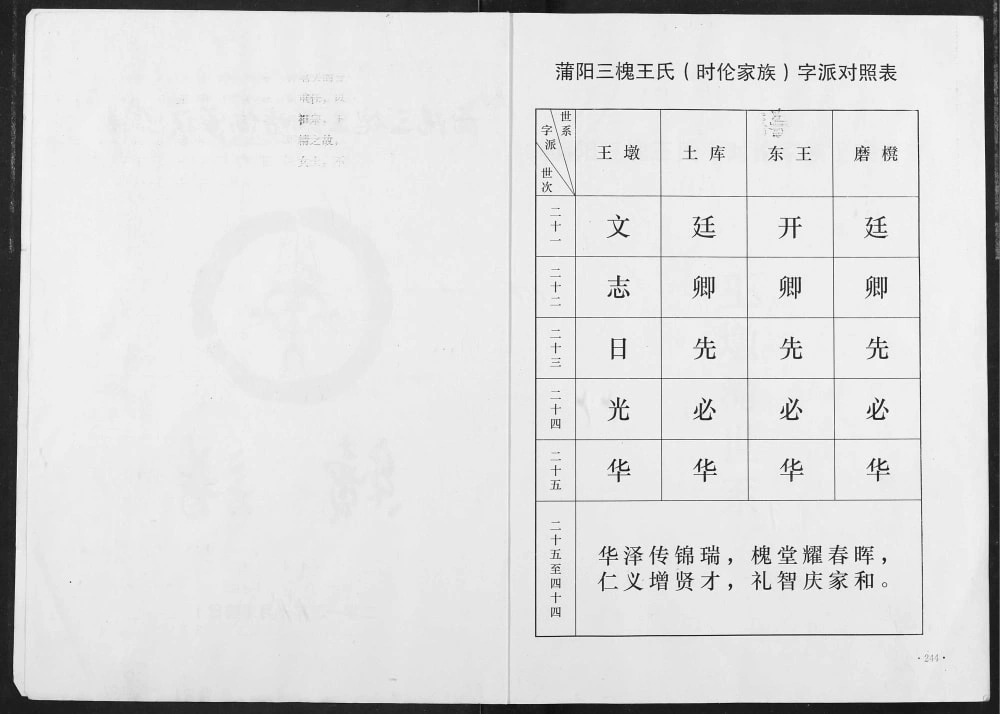 蒲阳三槐王氏（时伦家族）字派对照表
世系
字派
世次
王墩 土库 东王 磨榄
二十一 文 廷 开 廷
二十二 志 卿 卿 卿
二十三 日 先 先 先
二十四 光 必 必 必
二十五 华 华 华 华
二十五至四十四
华泽传锦瑞，槐堂耀春晖，
仁义增贤才，礼智庆家和。
·244·